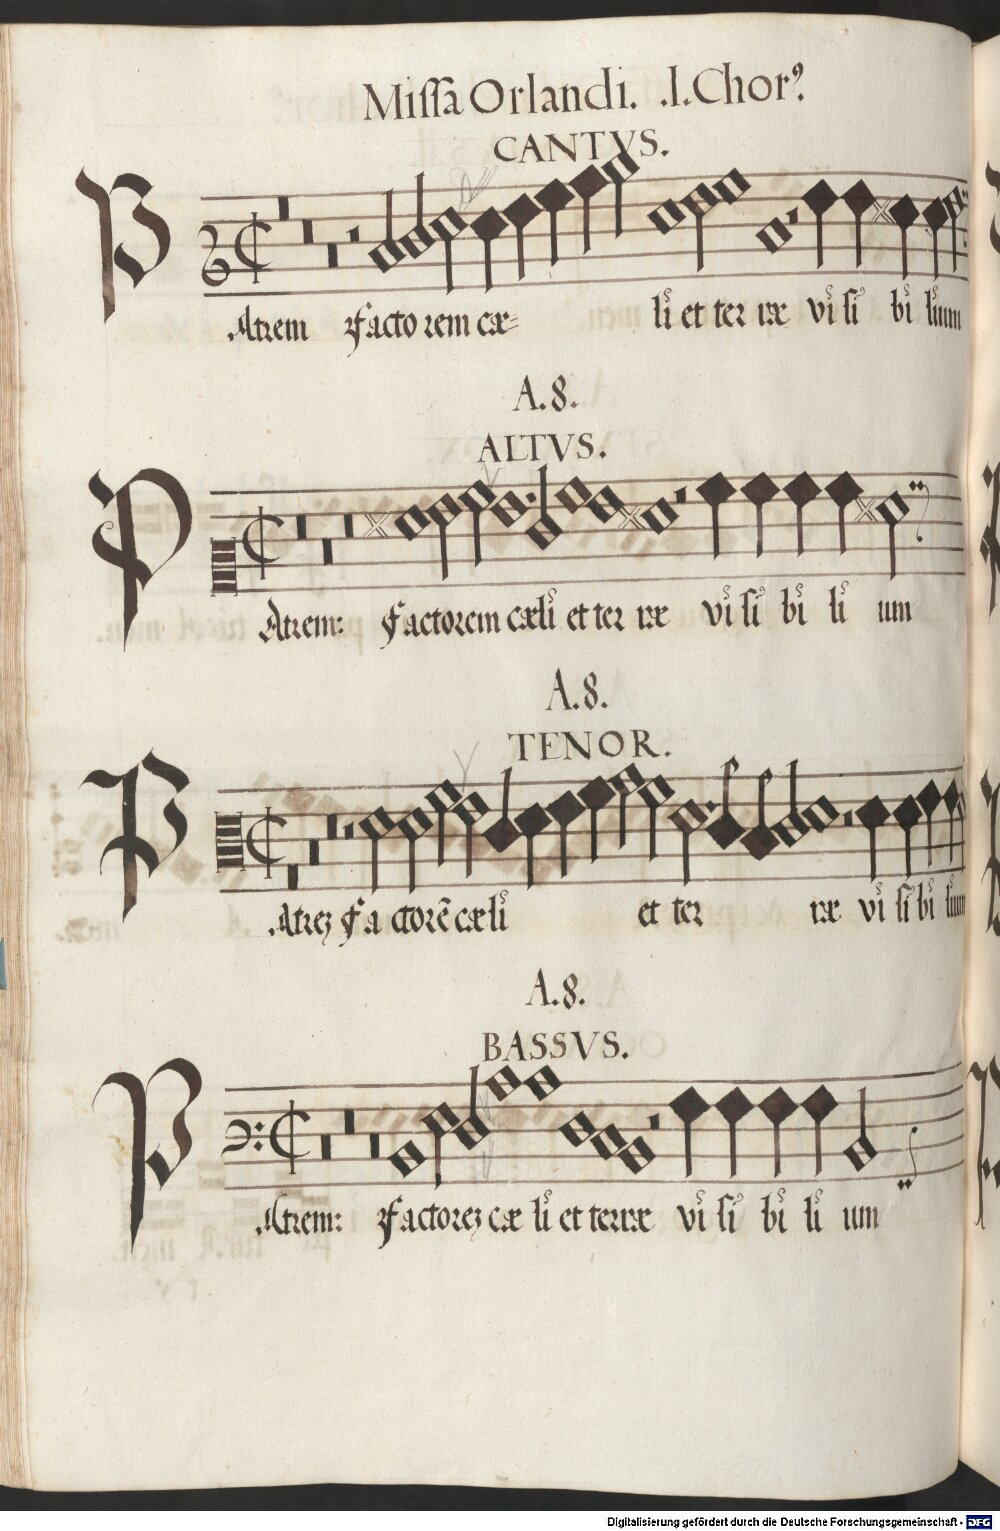 Missa Orlandi. .I. Chorꝰ.
CANTVS.
Atrem Factorem cæ= li et ter ræ vi si bi lium
A.8.
ALTVS.
Atrem: Factorem cæli et ter ræ vi si bi li um
A.8.
TENOR.
Atreʒ Factorē cæli et ter ræ vi si bi lium
A.8.
BASSVS.
Atrem: Factoreʒ cæ li et terræ vi si bi li um
Digitalisierung gefördert durch die Deutsche Forschungsgemeinschaft - DFG